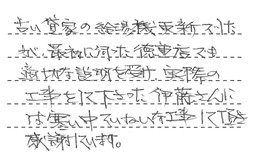 古い貸家の給湯機更新でした
が、最初に伺った徳重店でも
適切な説明を受け、実際の
工事をして下さった伊藤さんに
は寒い中ていねいな工事して頂き
感謝しています。